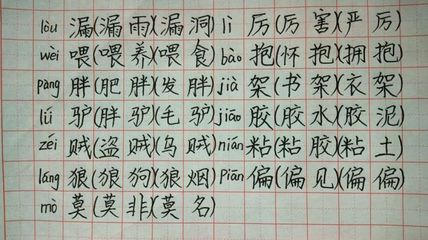 lòu 漏(漏雨)(漏洞) lì 厉(厉害)(严厉)
wèi 喂(喂养)(喂食) bào 抱(怀抱)(拥抱)
pàng 胖(肥胖)(发胖) jià 架(书架)(衣架)
lǘ 驴(胖驴)(毛驴) jiāo 胶(胶水)(胶泥)
zéi 贼(盗贼)(乌贼) nián 粘(粘胶)(粘土)
láng 狼(狼狗)(狼烟) piān 偏(偏见)(偏偏)
mò 莫(莫非)(莫名)